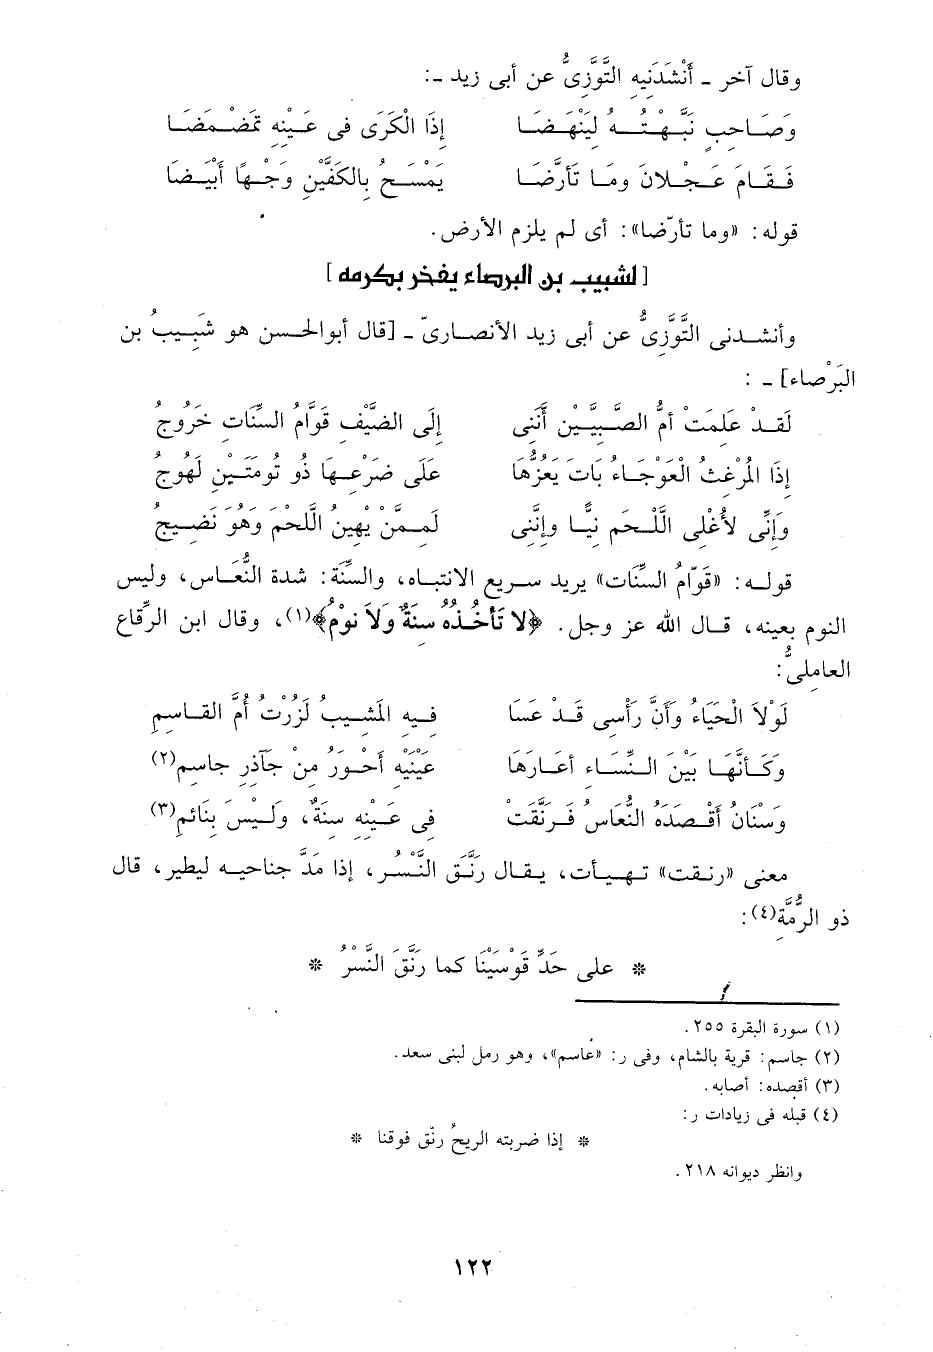 وقال آخر ـ أَنْشَدَنيه التَّوَّزىُّ عن أبى زيد ـ:
وَصَاحبٍ نَبَّهْتُهُ لِيَنْهَضَا إذَا الْكَرَى فى عَيْنِه تَمَضْمَضَا
فَقَامَ عَجْلانَ ومَا تَأَرَّضَا يَمْسَحُ بِالكَفَّيْنِ وَجْهًا أَبْيَضَا
قوله: «وما تأرّضا»: أى لم يلزم الأرض.
[لشبيب بن البرصاء يفخر بكرمه]
وأنشدنى التَّوَّزىُّ عن أبى زيد الأنصارىّ ـ [قال أبوالحسن هو شَبِيبُ بن
البَرْصاء] ـ :
لَقَدْ عَلِمَتْ أمُّ الصَّبِيَّيْنِ أَنَّنى إلَى الضَّيْفِ قَوَّامُ السِّنَاتِ خَرُوجُ
إذَا المُرْغثُ العَوْجَاءُ بَاتَ يَعُزُّهَا عَلَى ضَرْعِهَا ذُو تُومَتَيْنِ لَهُوجُ
وَإنِّى لأُغْلى الَّلْحَم نِيًّا وإنَّنى لَمِمَّنْ يُهِينُ الَّلحْمَ وَهُوَ نَضيجُ
قوله: «قَوّامُ السِّنَات» يريد سريع الانتباه، والسِّنَة: شدة النُّعَاس، وليس
النوم بعينه، قال الله عز وجل. ﴿لا تَأخُذُهُ سنَةٌ وَلاَ نَوْمٌ﴾(١)، وقال ابن الرِّقاع
العاملىُّ:
لَوْلاَ الْحَيَاءُ وَأنَّ رَأْسِى قَدْ عَسَا فيهِ المَشيبُ لَزُرْتُ أُمَّ القَاسِمِ
وَكَأنَّهَا بَيْنَ النِّسَاء أعَارَهَا عَيْنَيْه أَحْوَرُ منْ جَآذرِ جاسمِ(٢)
وَسْنَانُ أَقْصَدَهُ النُّعَاسُ فَرَنَّقَتْ فى عَيْنِه سِنَةٌ، وَلَيْسَ بِنَائمِ(٣)
معنى «رنقت» تهيأت، يقال رَنَّقَ النَّسْرُ، إذا مَدَّ جناحيه ليطير، قال
ذو الرُّمَّة(٤):
* على حَدِّ قَوْسَيْنَا كما رَنَّقَ النَّسْرُ *
(١) سورة البقرة ٢٥٥.
(٢) جاسم: قرية بالشام، وفى ر: «عاسم»، وهو رمل لبنى سعد.
(٣) أقصده: أصابه.
(٤) قبله فى زيادات ر:
* إذا ضربته الريحُ رنّق فوقنا *
وانظر ديوانه ٢١٨.
١٢٢